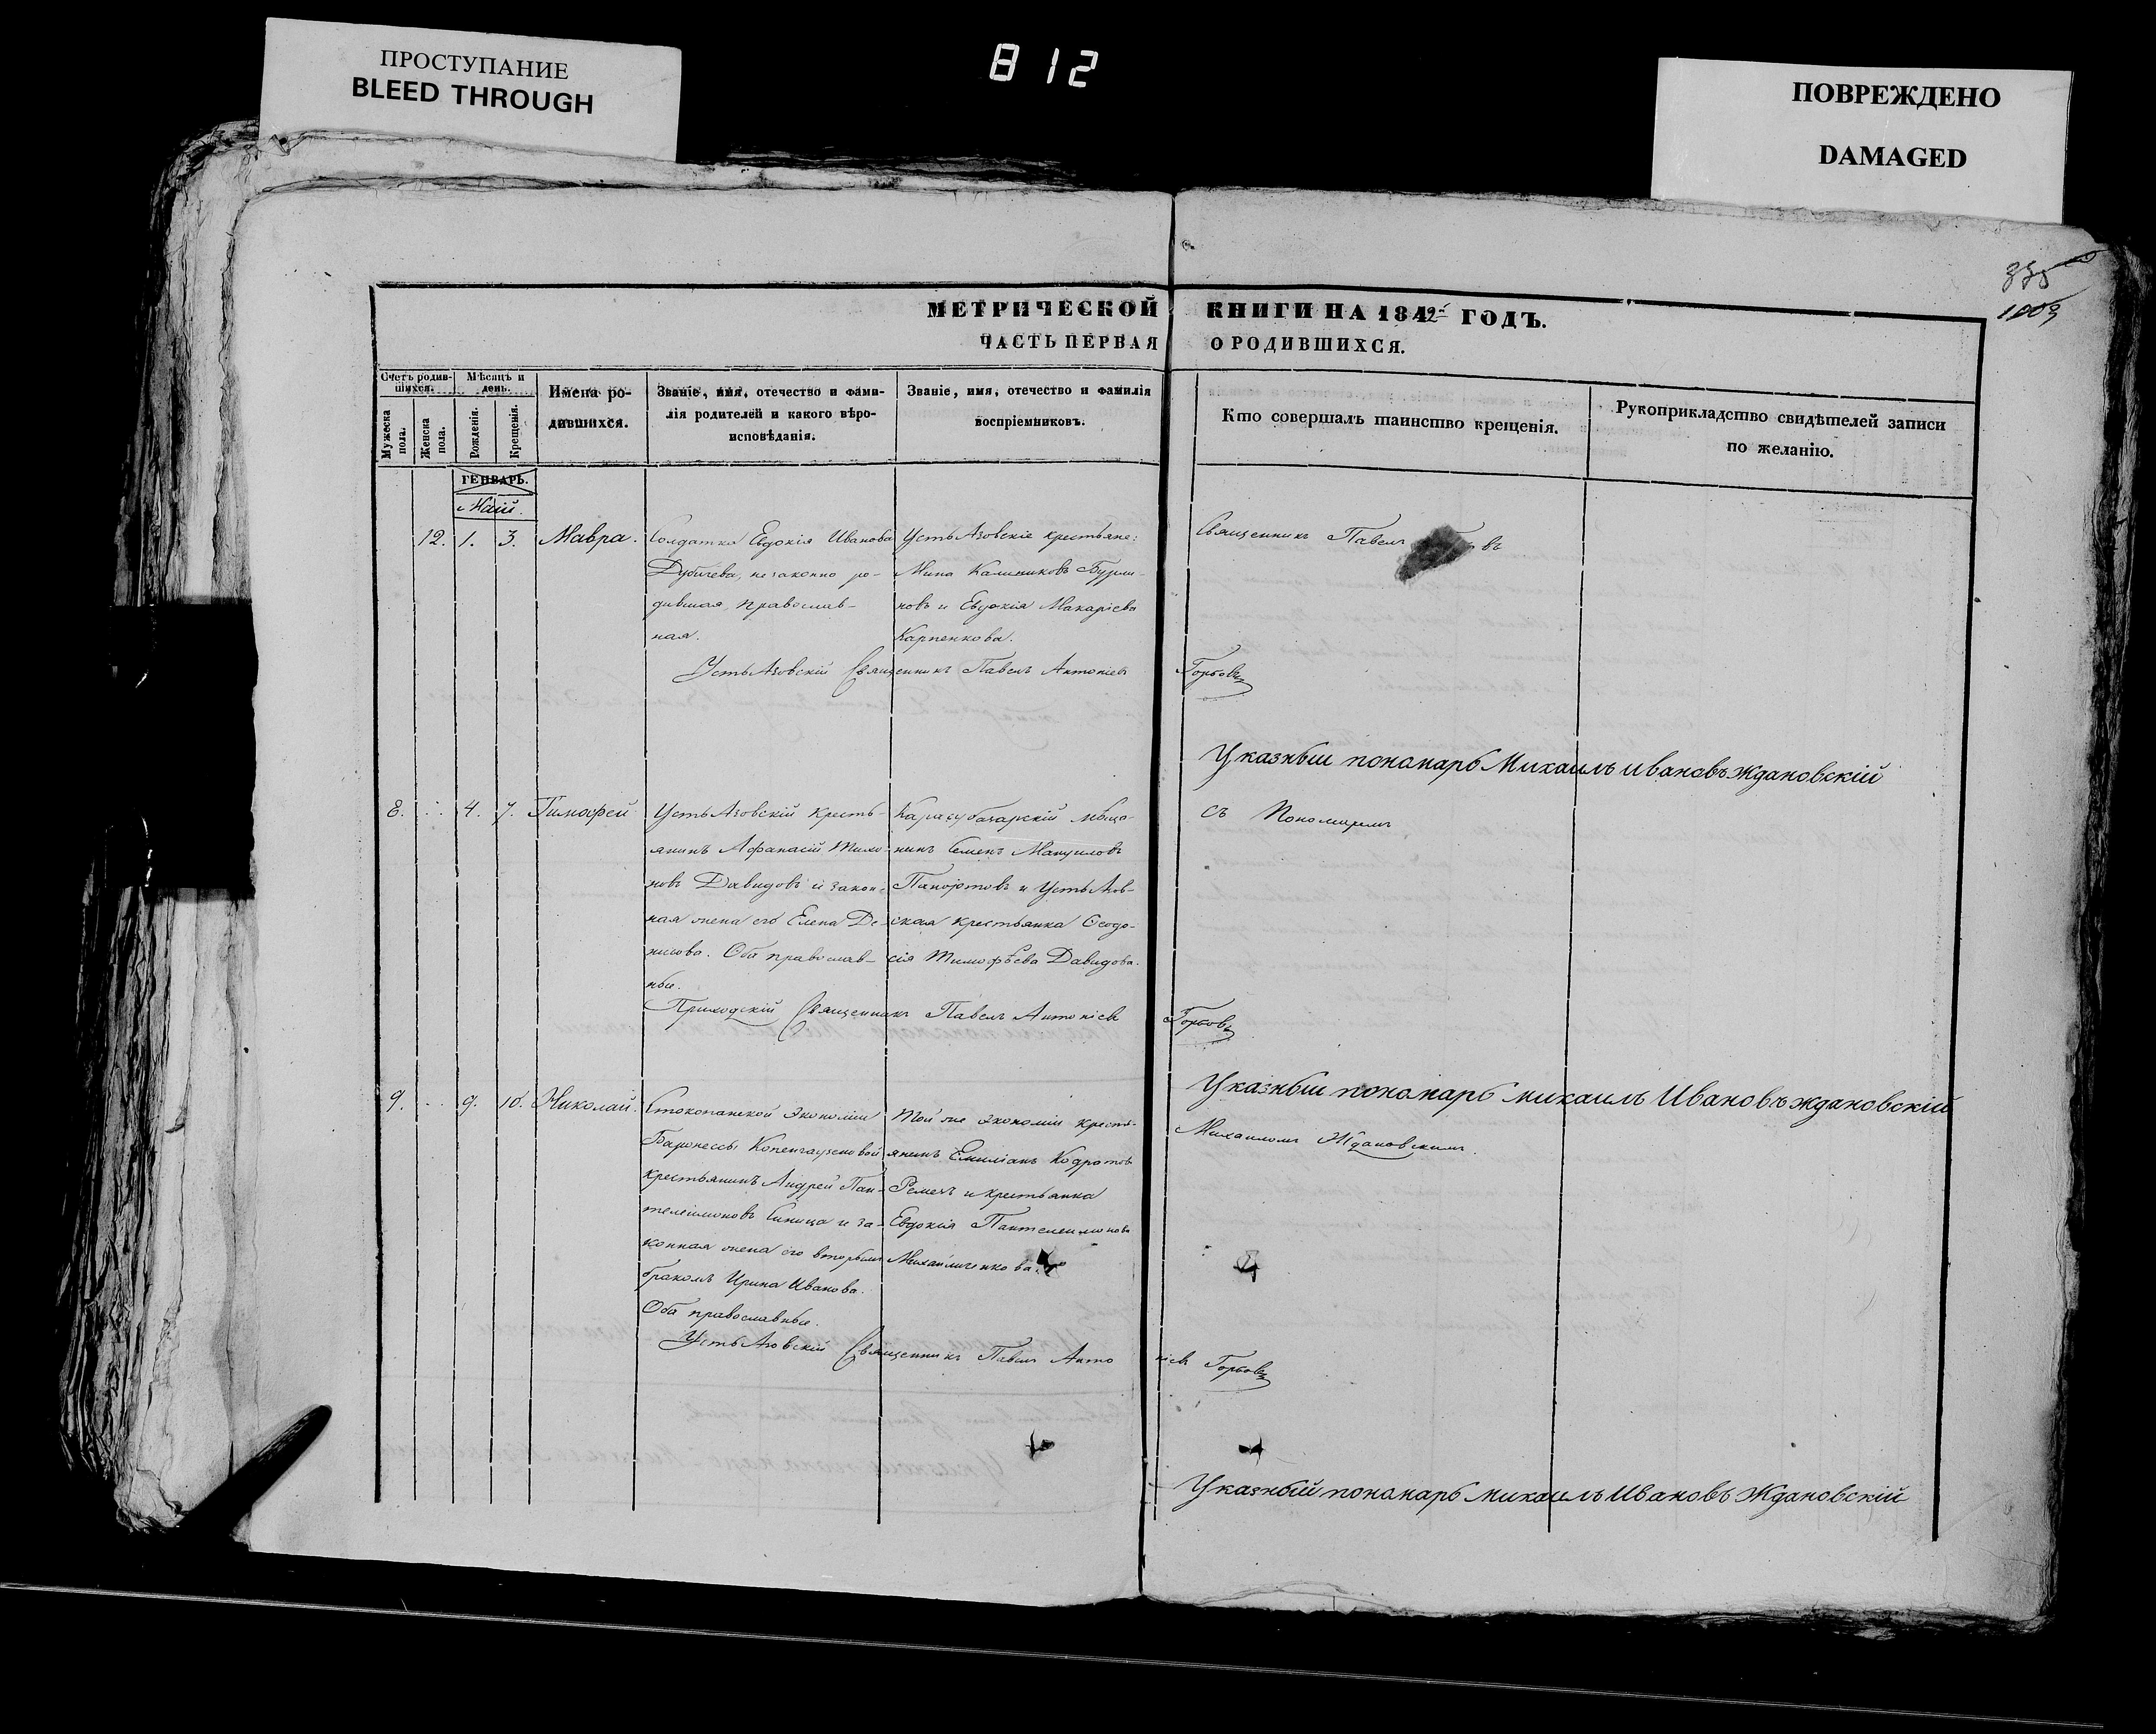 ПРОСТУПАНИЕ
BLEED THROUGH
812
ПОВРЕЖДЕНО
DAMAGED
335
1003
МЕТРИЧЕСКОЙ КНИГИ НА 1842 ГОДЪ.
ЧАСТЬ ПЕРВАЯ О РОДИВШИХСЯ.
Счетъ родив-
шихся.
Мужеска
пола.
Женска
пола.
Мѣсяцъ и
день.
Рожденія.
Крещенія.
Имена ро-
дившихся.
Званіе, имя, отечество и фами-
лія родителей и какого вѣро-
исповѣданія.
Званіе, имя, отечество и фамилія
воспріемниковъ.
Кто совершалъ таинство крещенія.
Рукоприкладство свидѣтелей записи
по желанію.
ГЕНВАРЬ.
Маій.
12. 1. 3. Мавра.
Солдатка Евдокія Иванова
Дубичева, незаконно ро-
дившая, православ-
ная.
Усть Азовскіе крестьяне:
Мина Калиниковъ Бурли-
новъ и Евдокія Макаріева
Карпенкова.
Священникъ Павелъ въ
Усть Азовскій Священникъ Павелъ Антоніевъ Горбовъ
Указныи пономарь Михаилъ ивановъ Ждановскій
8. 4. 7. Тимофей
Усть Азовскій кресть-
янинъ Афанасій Тихо-
новъ Давидовъ и закон-
ная жена его Елена Де-
нисова. Оба православ-
ные.
Карасубазарскій мѣща-
нинъ Семенъ Мануиловъ
и Усть Азов-
ская крестьянка Ѳеодо-
сія Тимофѣева Давидова.
съ Пономаремъ
Приходскій Священникъ Павелъ Антоніевъ Горбовъ
Указныи пономарь михаилъ Ивановъ ждановскій
9. 9. 10. Николай.
Стокопанской Экономіи
Баронессы Копенгаузеновой
крестьянинъ Андрей Пан-
телеимоновъ Синица и за-
конная жена его вторымъ
бракомъ Ирина Иванова.
Оба православные.
Той же экономіи кресть-
янинъ Емиліанъ Кодратовъ
Ремезъ и крестьянка
Евдокія Пантелеимонова
Михайличенкова.
Михаиломъ Ждановскимъ.
Усть Азовскій Священникъ Павелъ Антоніевъ Горбовъ
Указный пономарь михаилъ Ивановъ Ждановскій